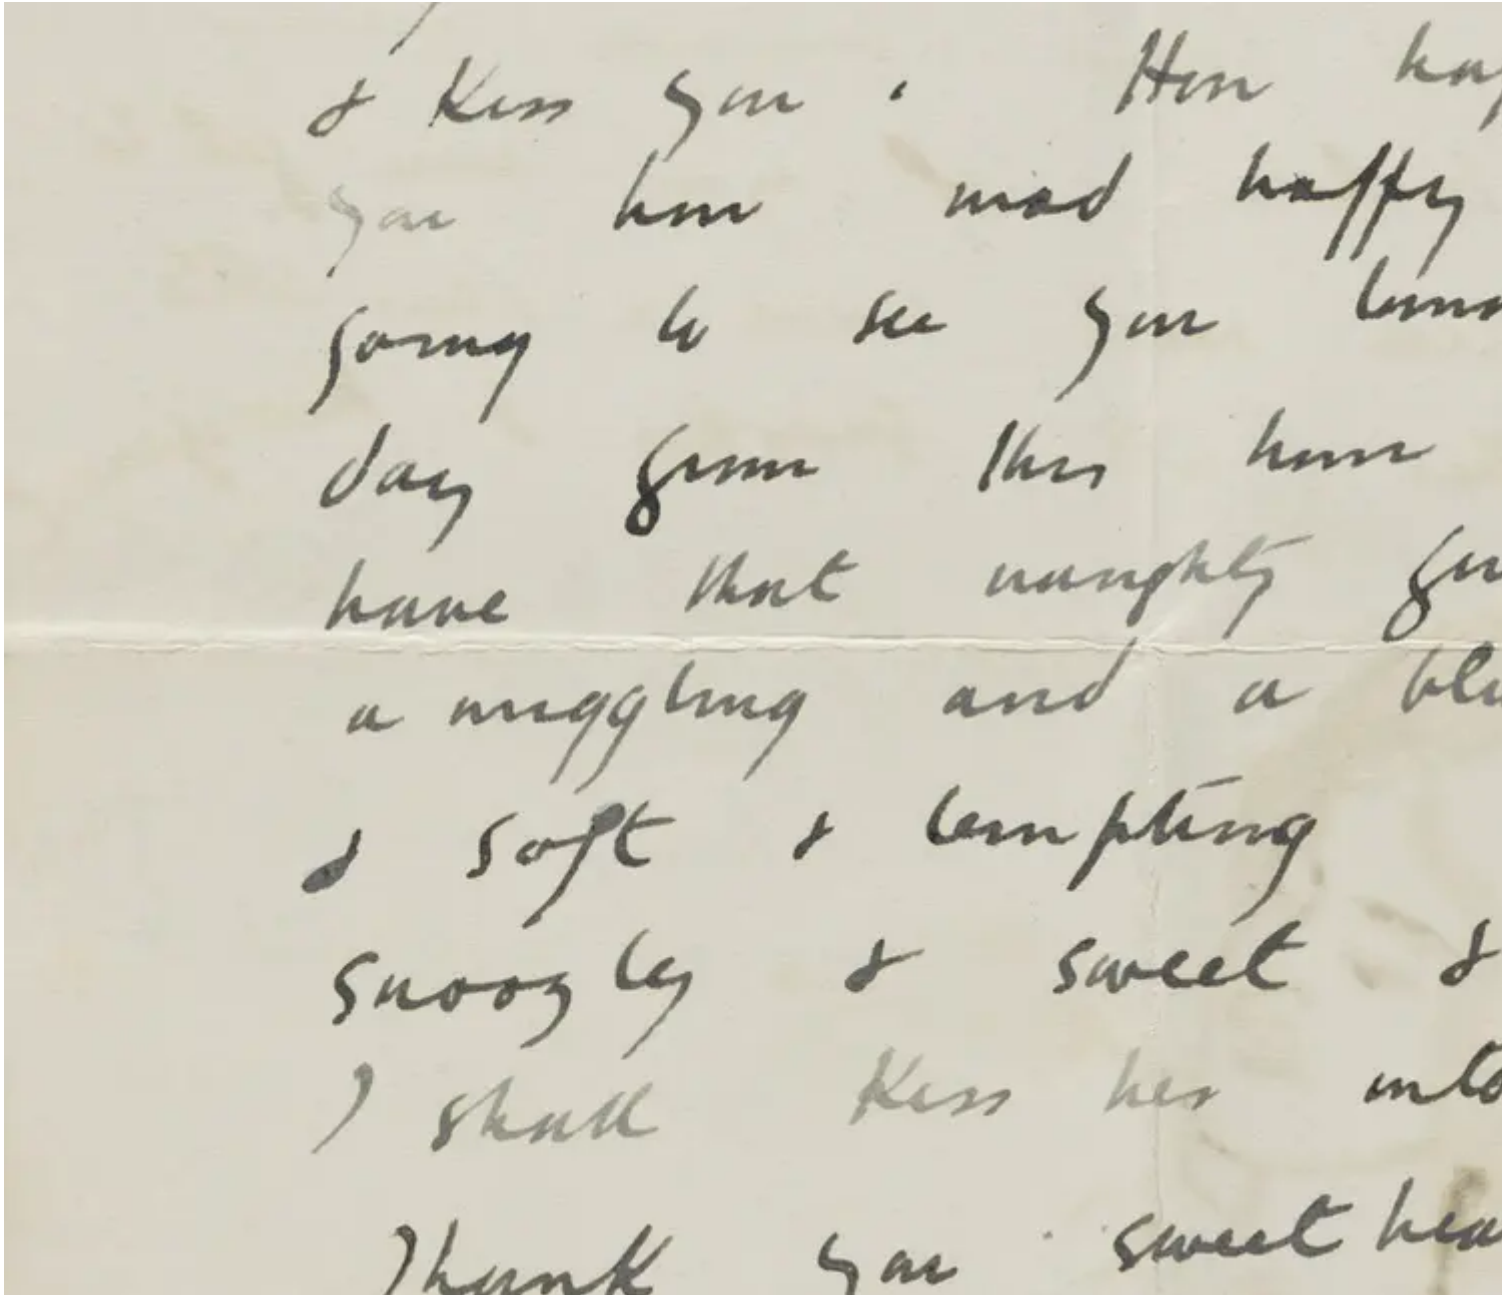 & Kiss you. How hap
you how mad happy
going to see you tomo
day from this hour
have that naughty gir
a wriggling and a blu
& soft & tempting
snoogley & sweet &
I shall Kiss her into
Thank you sweethea